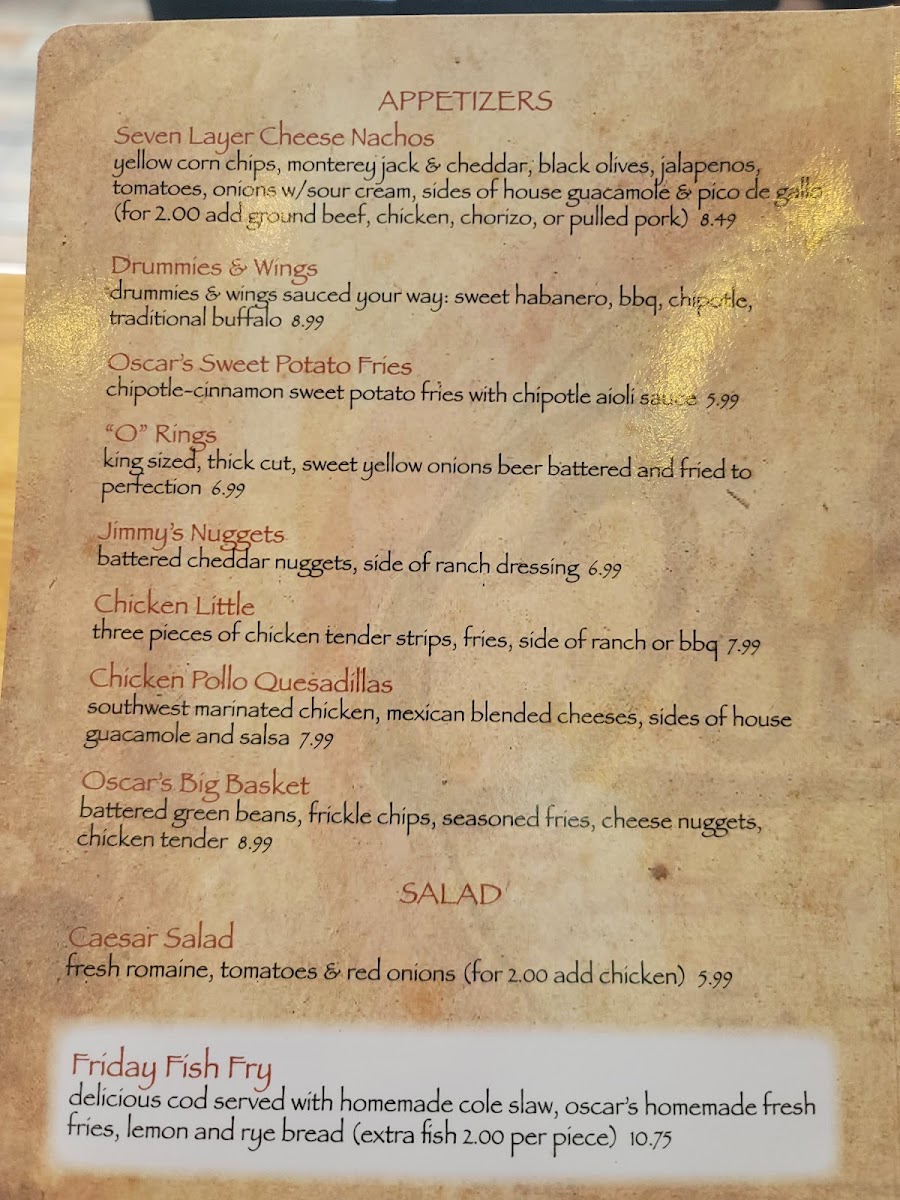 APPETIZERS
Seven Layer Cheese Nachos
yellow corn chips, monterey jack & cheddar, black olives, jalapenos,
tomatoes, onions w/sour cream, sides of house guacamole & pico de gallo
(for 2.00 add ground beef, chicken, chorizo, or pulled pork) 8.49
Drummies & Wings
drummies & wings sauced your way: sweet habanero, bbq, chipotle,
traditional buffalo 8.99
Oscar's Sweet Potato Fries
chipotle-cinnamon sweet potato fries with chipotle aioli sauce 5.99
"O" Rings
king sized, thick cut, sweet yellow onions beer battered and fried to
perfection 6.99
Jimmy's Nuggets
battered cheddar nuggets, side of ranch dressing 6.99
Chicken Little
three pieces of chicken tender strips, fries, side of ranch or bbq 7.99
Chicken Pollo Quesadillas
southwest marinated chicken, mexican blended cheeses, sides of house
guacamole and salsa 7.99
Oscar's Big Basket
battered green beans, frickle chips, seasoned fries, cheese nuggets,
chicken tender 8.99
SALAD
Caesar Salad
fresh romaine, tomatoes & red onions (for 2.00 add chicken) 5.99
Friday Fish Fry
delicious cod served with homemade cole slaw, oscar's homemade fresh
fries, lemon and rye bread (extra fish 2.00 per piece) 10.75